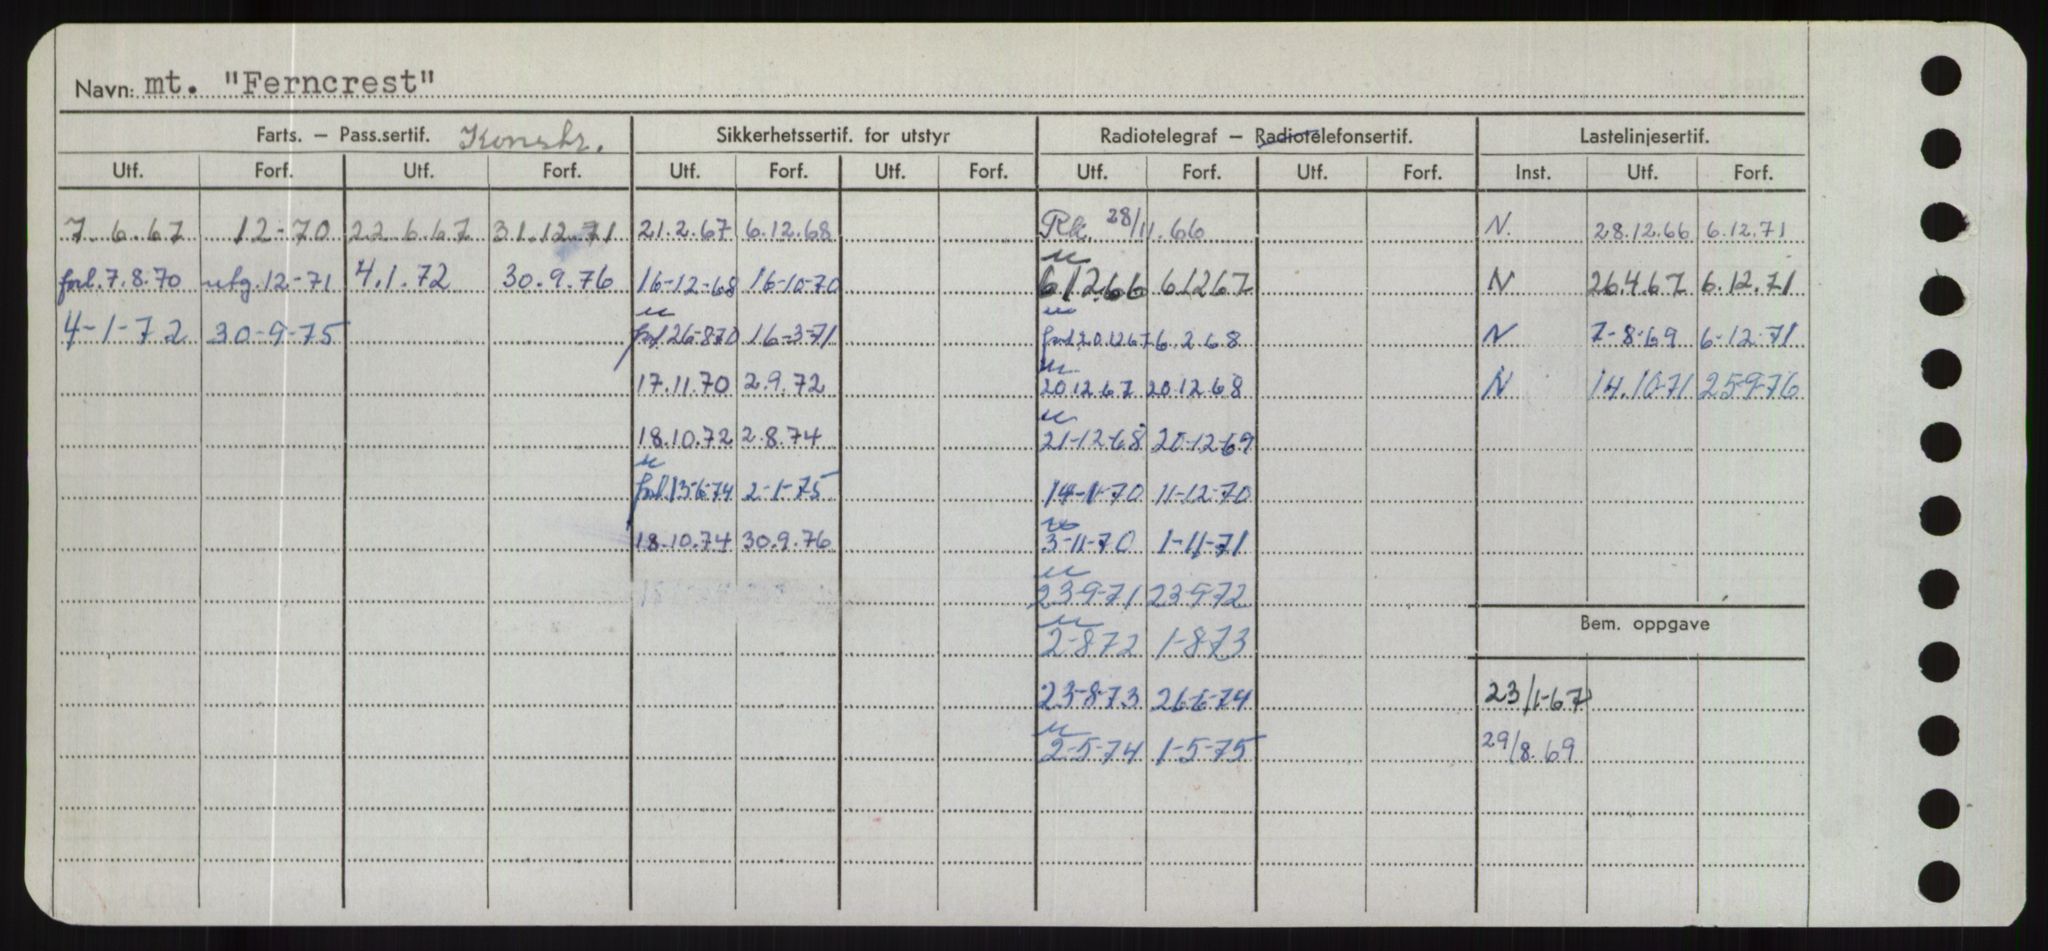 Navn: mt. "Ferncrest"
Farts. – Pass.sertif. Konstr. Sikkerhetssertif. for utstyr Radiotelegraf – Radiotelefonsertif. Lastelinjesertif.
Utf. Forf. Utf. Forf. Utf. Forf. Utf. Forf. Utf. Forf. Utf. Forf. Inst. Utf. Forf.
7.6.67 12-70 22 6.67 31.12.71 21.2.67 6.12.68 28/11.66 N. 28.12.66 6.12.71
forl. 7.8.70 utg. 12-71 4.1.72 30.9.76 16-12-68 16-10-70 6.12.66 6.12.67 N 26.4.67 6.12.71
4-1-72 30-9-75 forl. 26-8-70 16-3-71 forl. 20.12.67 6.2.68 N 7-8-69 6-12-71
17.11.70 2.9.72 20.12.67 20.12.68 N 14.10-71 25-9-76
18.10.72 2.8.74 21-12-68 20-12-69
forl. 13-6-74 2-1-75 14-1-70 11-12-70
18.10.74 30.9.76 3-11-70 1-11-71
23-9-71 23-9-72
Bem. oppgave
2-8-72 1-8-73
23-8-73 26-6-74 23/1-67
2-5-74 1-5-75 29/8.69